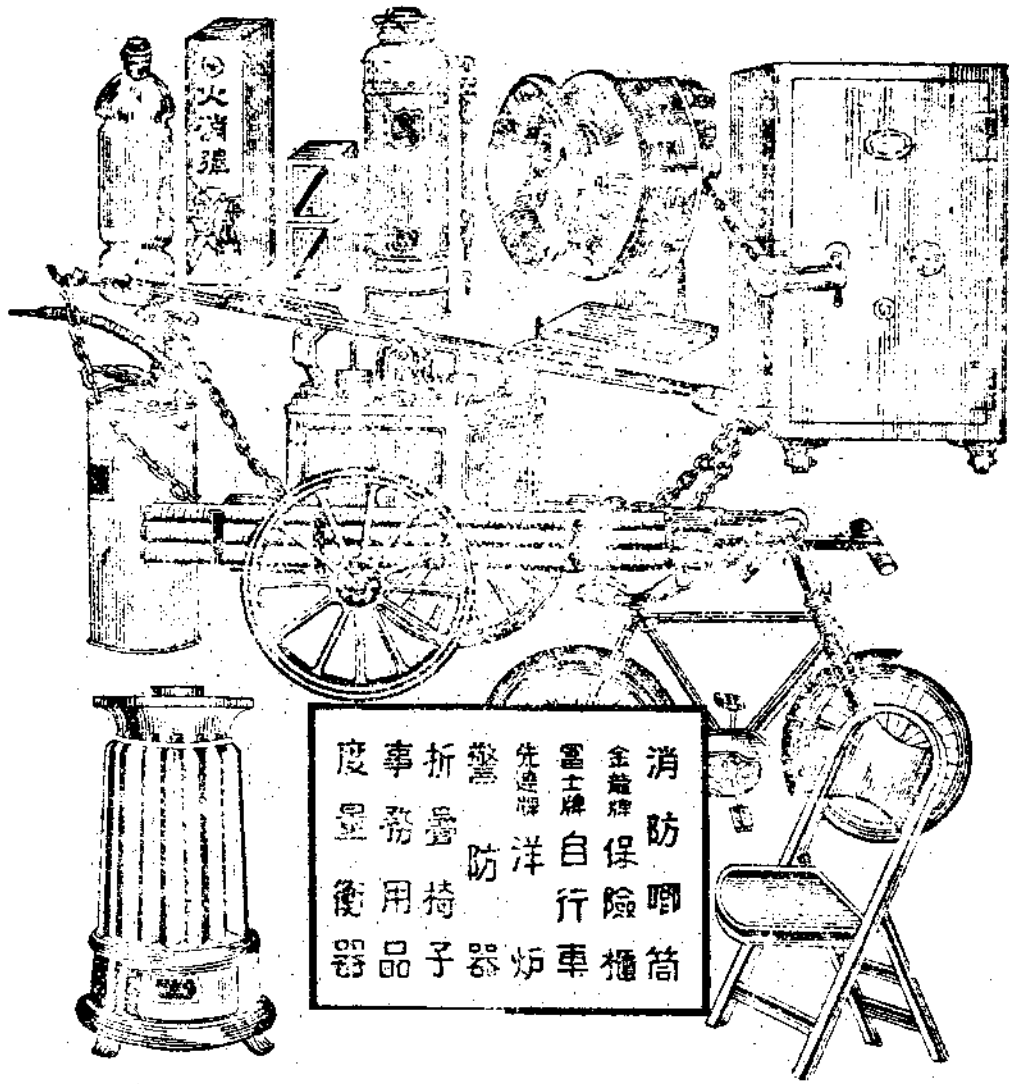 消防唧筒
金龍牌保險櫃
富士牌自行車
先達牌洋炉
警防器
折疊椅子
事務用品
度量衡器
火消彈